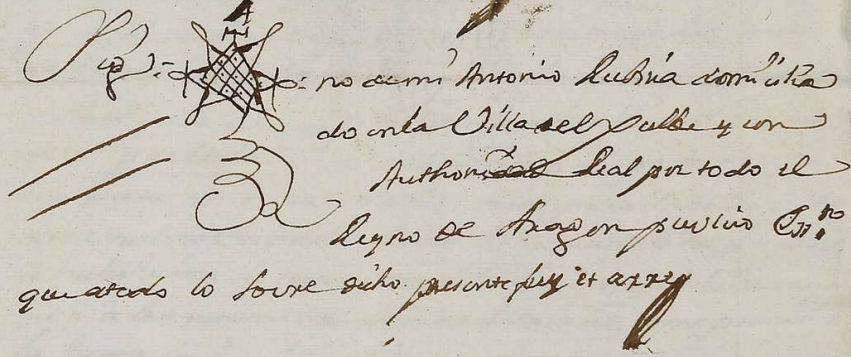 Sig= =no de mi Antonio Rubira domicilia
do en la Villa del y con
Authoridad Real por todo el
Reyno de Aragon publico Essno
que a todo lo sovre dicho presente fuy et